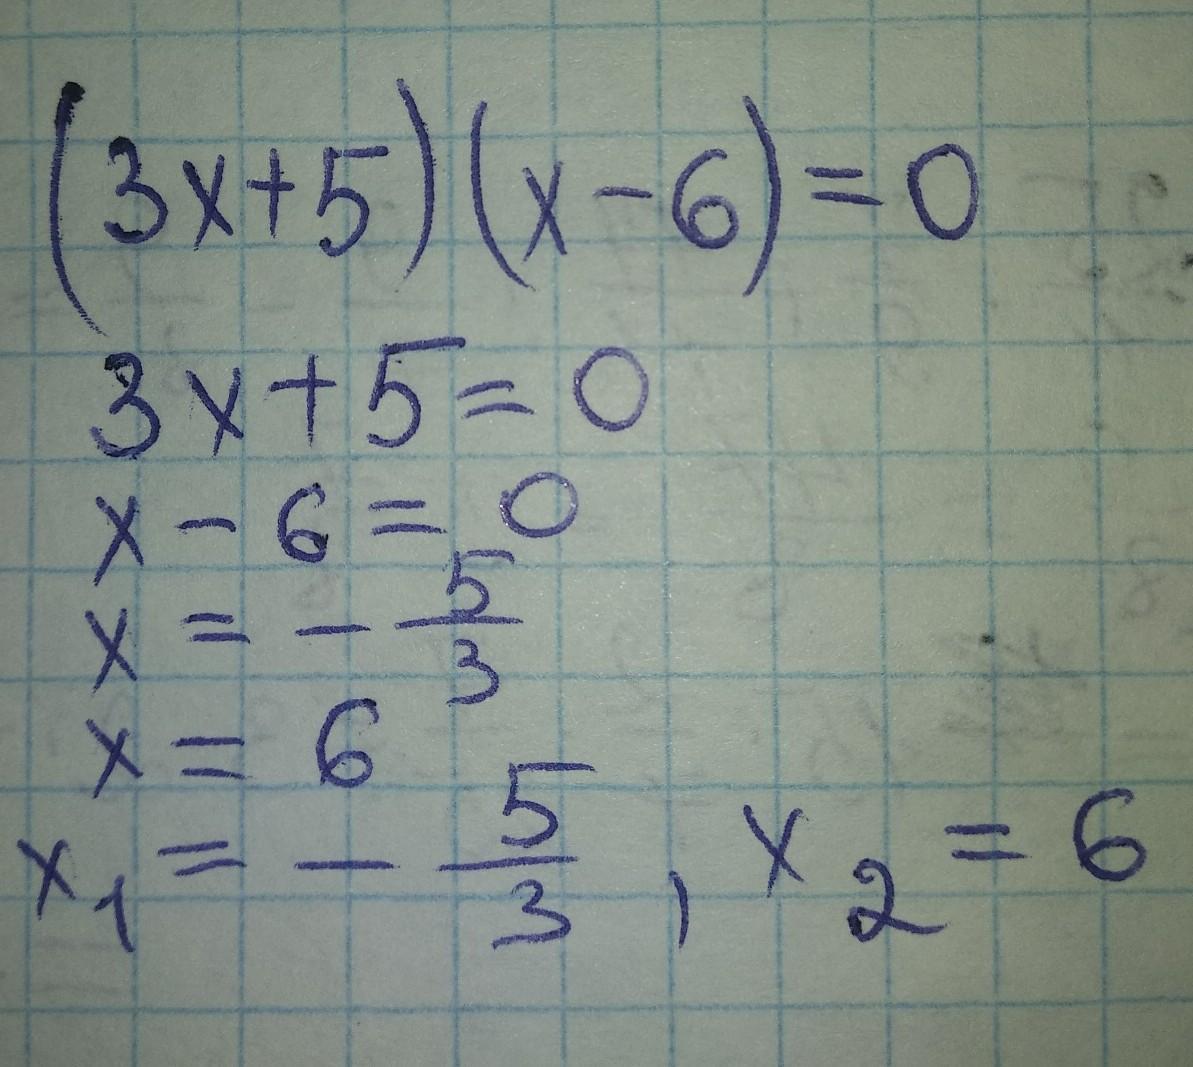 (3x+5)(x-6)=0
3x+5=0
x-6=0
x=-5/3
x=6
x₁=-5/3, x₂=6